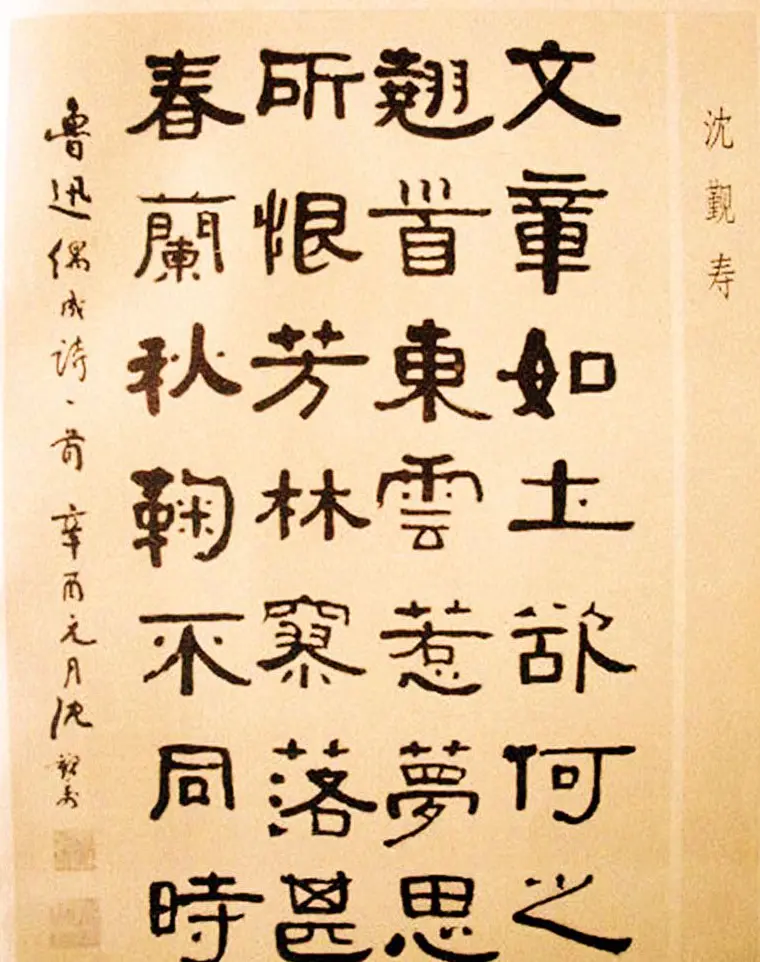 沈觐寿
文章如土欲何之
翹首東雲惹夢思
所恨芳林寥落甚
春蘭秋鞠不同時
魯迅偶成詩一首 辛酉元月沈覲壽